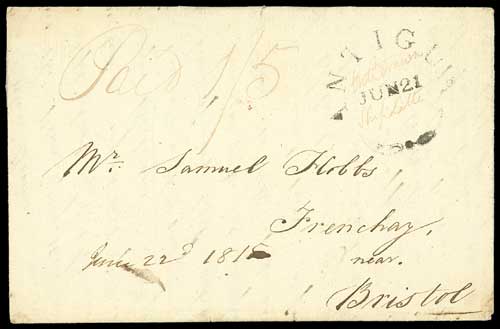 Paid 1/5
ANTIGUA
JUN 21
Ship Letter
Mr. Samuel Hobbs
Frenchay,
near.
June 22d 1815
Bristol